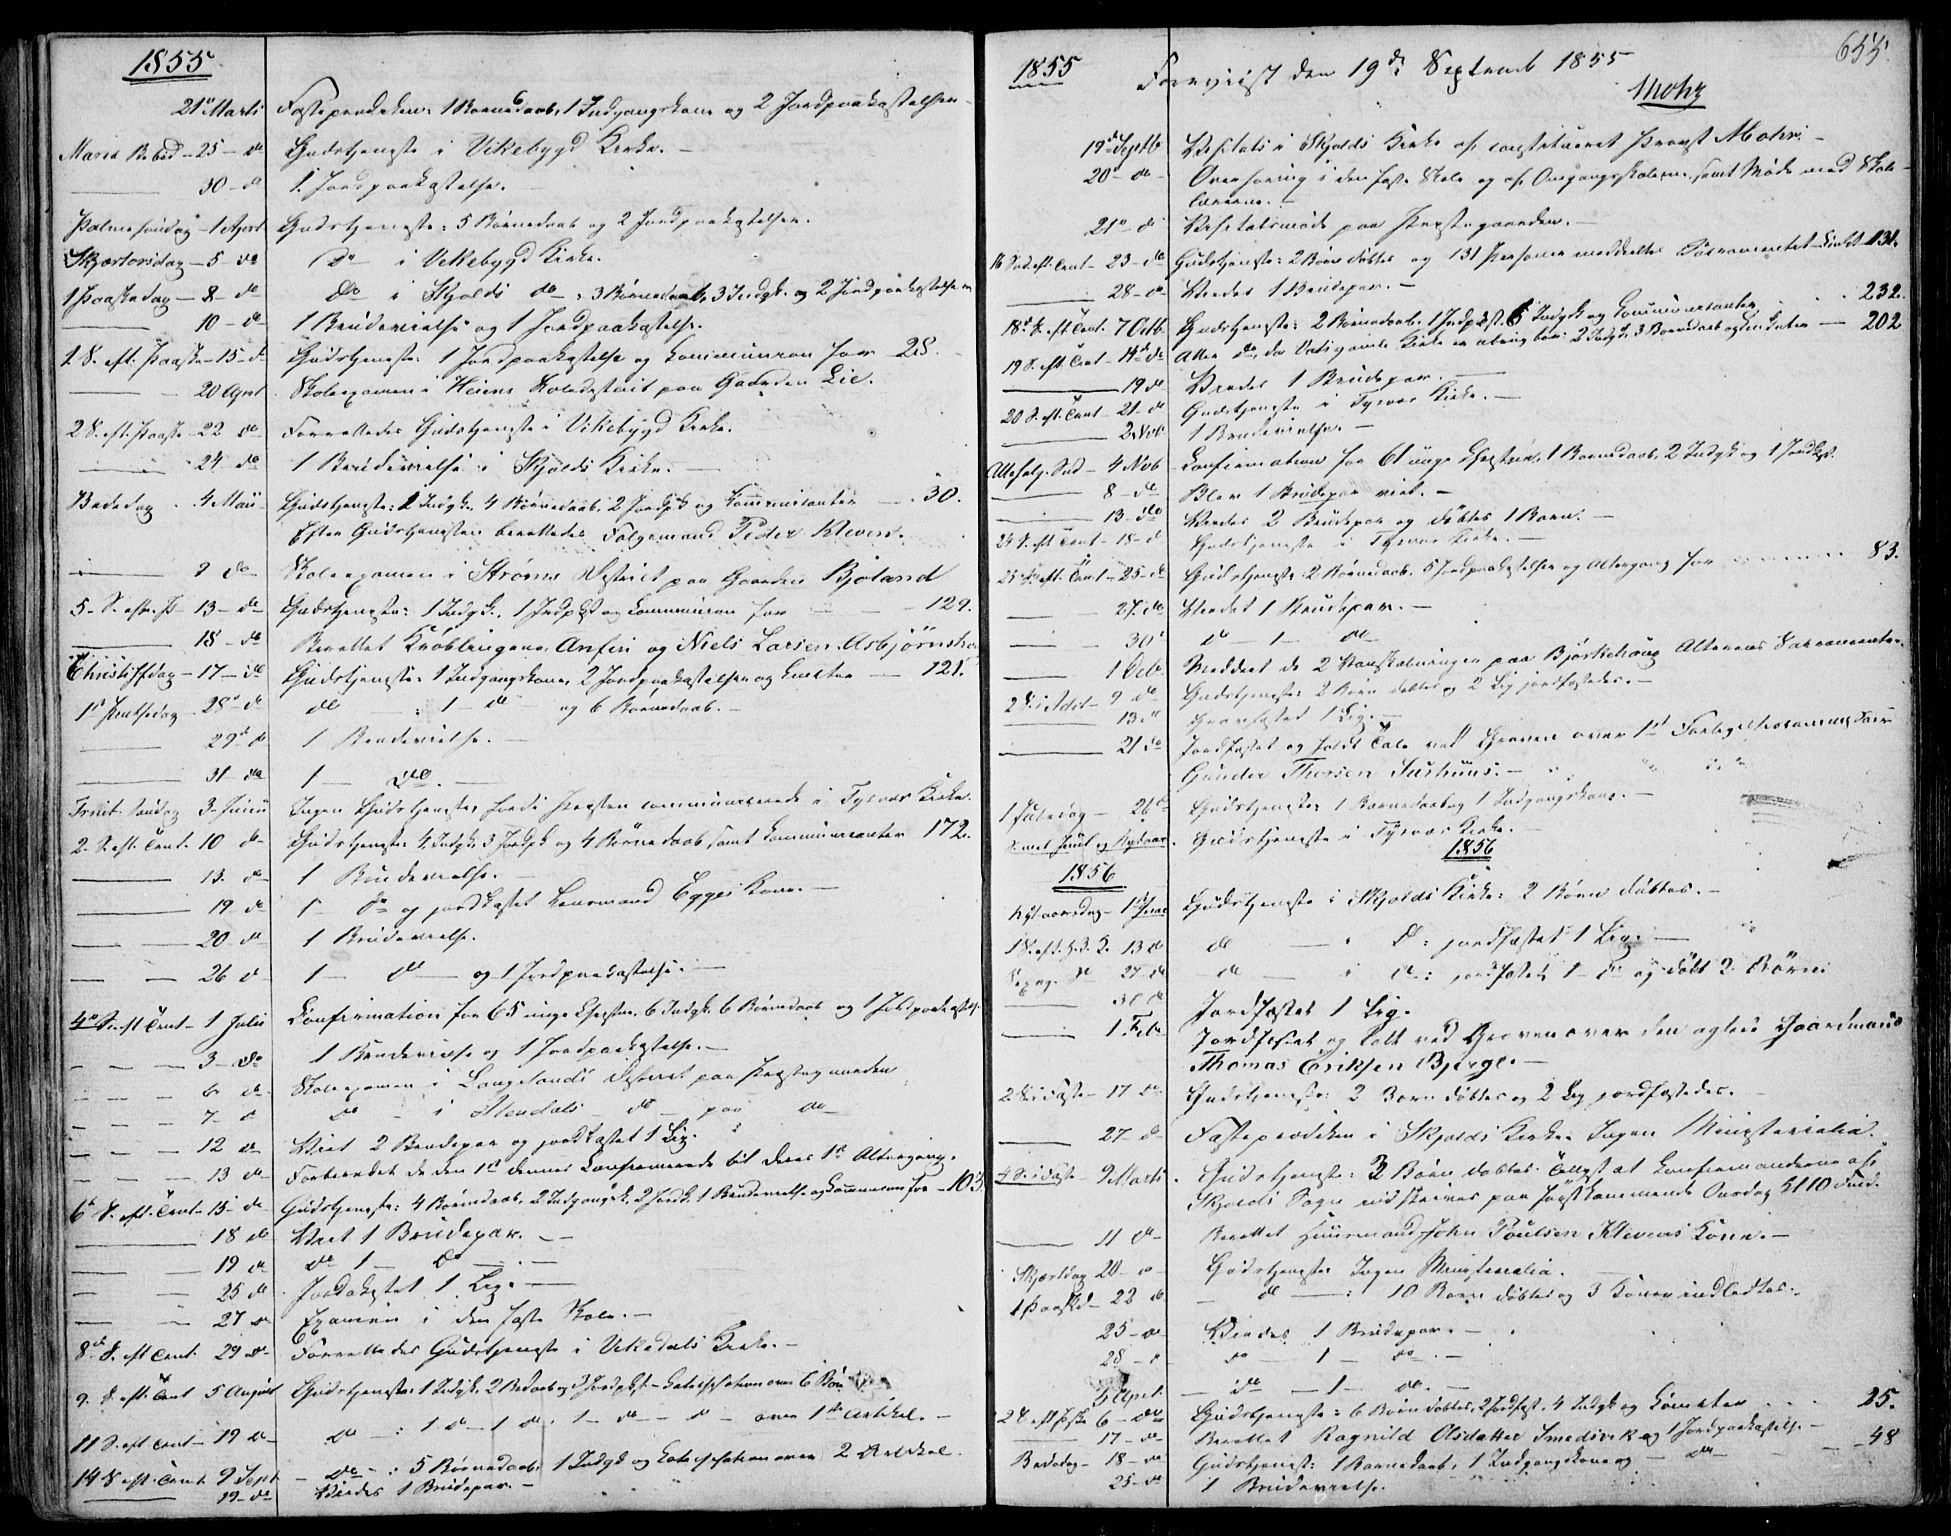 1855
21de Marts Fasteprædiken: 1 Barnedaab, 1 Indgangskone og 2 Jordpaakastelser
Mariæ Bebud - 25 - do Gudstjeneste i Vikebygd Kirke. -
30 - do 1 Jordpaakastelse.
Palmesøndag - 1 April Gudstjeneste: 5 Børnedaab og 2 Jordpaakastelser.
Skjærtorsdag - 5 - do Do i Vikebygd Kirke.
1 Paaskedag - 8 - do do i Skjolds do: 3 Børnedaab, 3 Indgk. og 2 Jordpaakastelser
10 - do 1 Brudevielse og 1 Jordpaakastelse.
1 S. eft. Paaske - 15 - d Gudstjeneste: 1 Jordpaakastelse og Communion for 28.
20 April Skoleexamen i Heiens Skoledistrict paa Gaarden Lie.
2 S. eft. Paaske - 22 do Forrettedes Gudstjeneste i Vikebygd Kirke.
24 do 1 Brudevielse i Skjolds Kirke. -
Bededag - 4 Mai Gudstjeneste: 2 Indgk. 4 Børnedaab, 2 Jordpk og Communicanter - 30.
Efter Gudstjenesten berettedes Følgemand Peder Kleven.
9 do Skoleexamen i Strøms District paa Gaarden Bjoland
5 - S. eftr. P - 13 - do Gudstjeneste: 1 Indgk. 1 Jordpkst og Communion for - 129.
18 - do Berettet Krøblingene Anfin og Niels Larsen Asbjørnshe
Christi Hfdag - 17 - do Gudstjeneste: 1 Indgangskone, 2 Jordpaakastelser og Gjester - 121.
1ste Pintsedag - 28de d do : 1 do og 6 Børnedaab. -
29de d 1 Brudevielse. -
31 - do 1 - do. -
Trinit. Søndag 3 - Junii Ingen Gudstjeneste, fordi Præsten communicerede i Tysvær Kirke.
2. S. eft. Trint. 10 do Gudstjeneste: 4 Indgk. 3 Jordpk og 4 Børnedaab, samt Communicanter 172.
13. do 1 Brudevielse. -
19 - do 1 - do og jordkastet Lensmand Egges Kone. -
20 do 1 Brudevielse.
26 d 1 - do - og 1 Jordpaakastelse. -
4de S. eft Trint - 1 Julii Confirmation for 65 unge Christne, 6 Indgk. 6 Børnedaab og 1 Jordpaakastelse
3 - do 1 Brudevielse og 1 Jordpaakastelse. -
6 do Skoleexamen i Langelands District paa Præstegaarden
7 - d do - i Stendals - do - paa do
12 do Viet 2 Brudepar og jordkastet 1 Lig.
13 do Forberedet de den 1ste dennes Confirmerede til deres 1ste Altergang.
6te S. eft. Trint - 15 - do Gudstjeneste: 4 Børnedaab, 2 Indgangsk. 2 Jordk. 1 Brudevielse og Communion for - 103
18 do Viet 1 Brudepar. -
19 d do 1 - do -
25 d Jordkastet 1 Lig. -
27 do Examen i den faste Skole. -
8de S. eft Trint. 29 do Forrettedes Gudstjeneste i Vikedals Kirke. -
9. S. eft. Trint 5 August Gudstjeneste: 1 Indgk, 2 Bdaab og 3 Jordpkst - Catechisation over 6 Bøn
11 S. eft Trint - 19 do do - : 1 d - 1 do. 1 - do - do - over 1ste Artikel. -
14 S eft. Trint 9 Sept - do - : 5 Børnedaab, 1 Indgk og Catechisation over 2 Artikel.
19 - do Viedes 1 Brudepar. -
655.
1855 Foreviist den 19de Septemb 1855
Mohr
19de Septb Visitats i Skjolds Kirke af constitueret Provst Mohr. -
20de do Overhøring i den faste Skole og af Omgangsskolerne, samt Møde med Skole-
lærerne. -
21de d Visitatsmøde paa Præstegaarden. -
16 Snd. eft Trint - 23 - do Gudstjeneste: 2 Børn døbtes og 131 Personer meddeeltes Sacramentet 131.
28 - do Viedes 1 Brudepar. -
18de S. eft Trint. 7 Octb. Gudstjeneste: 2 Børnedaab, 1 Jordpkst. 6 Indgk og Communicanter 232.
19 S. eft Trint - 14de do Atter do, da Vats gamle Kirke er ubrugbar: 2 Indgk. 3 Børnedaab og Gjester - 202
19 do Viedes 1 Brudepar. -
20 S. eft. Trint - 21 - do Gudstjeneste i Tysvær Kirke. -
2 Nov 1 Brudevielse -
Allehelg. Snd - 4 Nvb Confirmation for 61 unge Christne, 1 Barnedaab, 2 Indgk og 1 Jordkst.
8 - do Blev 1 Brudepar viet. -
13 - do Viedes 2 Brudepar og døbtes 1 Barn. -
24 S. eft Trint - 18 - d Gudstjeneste i Tysvær Kirke. -
25 S. eft. Trint - 25 - do Gudstjeneste: 2 Børnedaab, 5 Jordpaakastelser og Altergang for 83.
27. do Viedes 1 Brudepar. -
30 do - 1 - do
1 Decb. Meddeelt de 2 Vanskabninger paa Bjørkehaug Alterens Sacramente.
2 S. i Advt - 9 do Gudstjeneste: 2 Børn døbtes og 2 Lig jordfæstedes. -
13 do Jordfæstet 1 Lig. -
21 do Jordfæstet og holdt Tale ved Graven over 1ste Forligelsescommissair
Gunder Thorsen Sushuus. -
1 Juledag - 26de Gudstjeneste: 1 Barnedaab og 1 Indgangskone. -
S. mel. Juul og Nytaar. Gudstjeneste i Tysvær Kirke. -
1856
1856
Nytaarsdag - 1ste Janr Gudstjeneste i Skjolds Kirke: 2 Børn døbtes. -
1 S. eft. H. 3. K. 13 do do - i do: jordfæstet 1 Lig. -
Sexag. S 27 do do - i do: jordfæstet 1 - do og døbt 2 Børn.
31 do Jordfæstet 1 Lig.
1 Feb. Jordfæstet og talt ved Graven over den agtede Gaardmand
Thomas Eriksen Bjerge. -
2 S. i Faste - 17 do Gudstjeneste: 2 Børn døbtes og 2 Lig jordfæstedes. -
27 - do Fasteprædiken i Skjolds Kirke. Ingen Ministerialia.
4 S. i Faste - 9 Marts. Gudstjeneste: 3 Børn døbtes. Tillyst at Confirmanderne af
Skjolds Sogn indskrives paa førstkommende Onsdag Kl 10
11 do Berettet Huusmand John Poulsen Klevens Kone. -
Skjærtdag 20 - do Gudstjeneste Ingen Ministerialia. -
1 Paaskd - 23 do do - : 10 Børn døbtes og 3 Koner indledtes. -
25 - do Viedes 1 Brudepar. -
28 - d do 1 - do. -
5 April - do - 1 - do. -
2 S eft Paske 6 - do Gudstjeneste: 6 Børn døbtes, 2 Jordfæst. 4 Indgk og Gjæster 25.
17 - do Berettet Ragnild Olsdatter Smedsvik og 1 Jordpaakastelse -
Bededag - 18 - do Gudstjeneste: 1 Barnedaab, 1 Indgangskone og - do - 48
25 - do 1 Brudevielse.